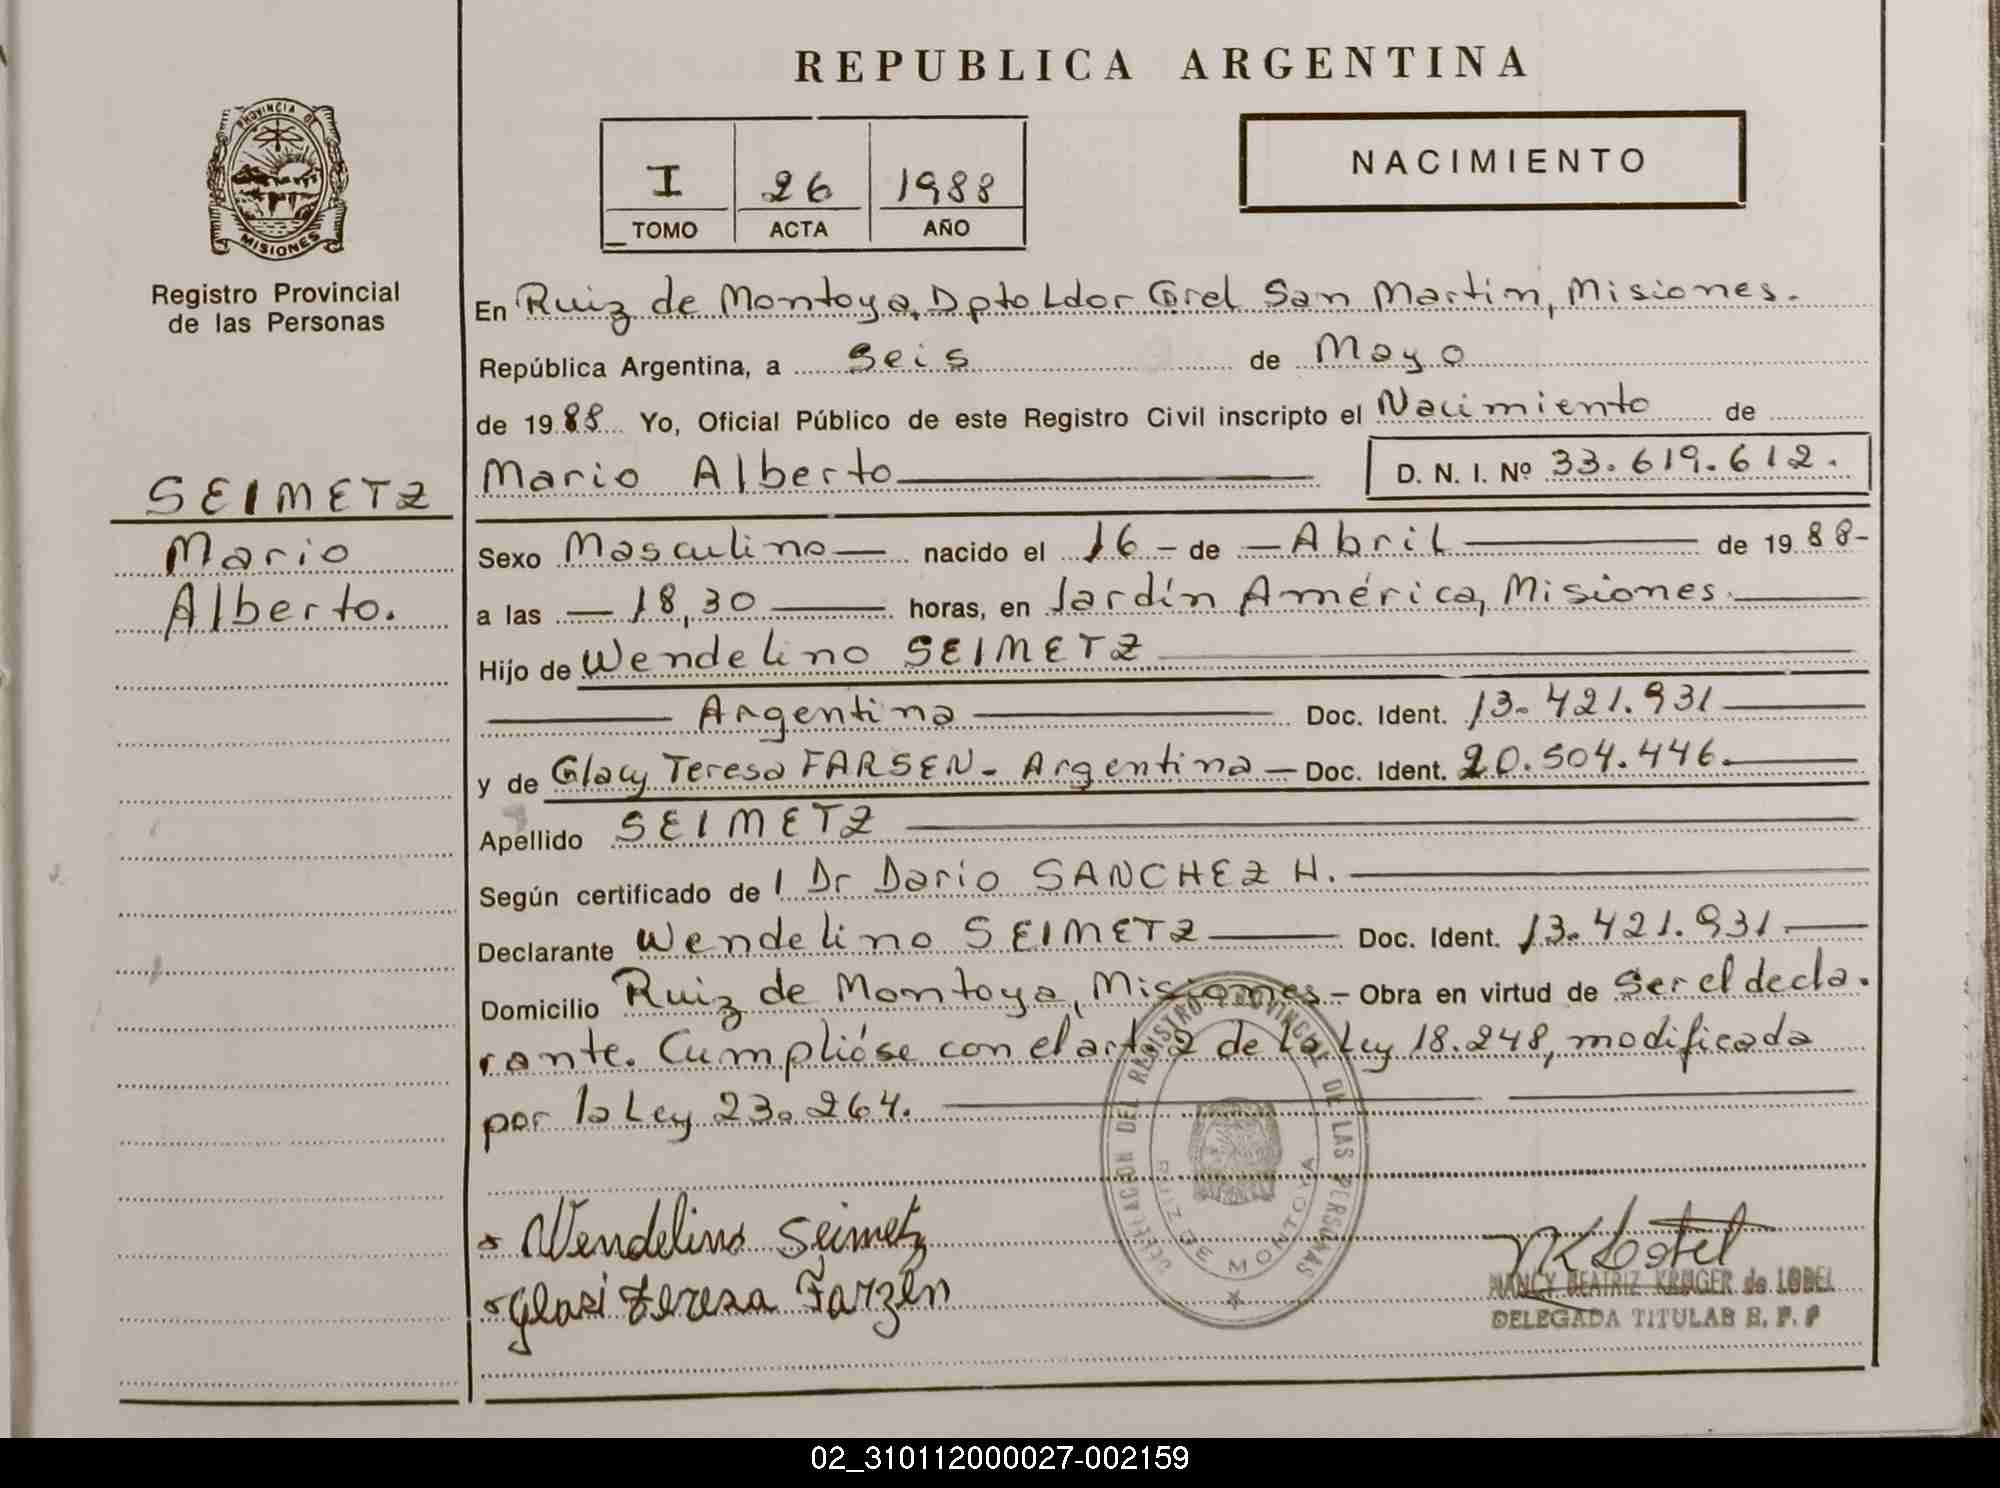 REPUBLICA ARGENTINA
PROVINCIA DE
MISIONES
Registro Provincial
de las Personas
I 26 1988
TOMO ACTA AÑO
NACIMIENTO
En Ruiz de Montoya, Dpto Ldor Grel San Martin, Misiones.
República Argentina, a Seis de Mayo
de 1988 Yo, Oficial Público de este Registro Civil inscripto el Nacimiento de
Mario Alberto D. N. I. Nº 33.619.612.
SEIMETZ
Mario
Alberto.
Sexo Masculino nacido el 16 - de - Abril de 1988-
a las - 18,30 horas, en Jardín América, Misiones.
Hijo de Wendelino SEIMETZ
Argentina Doc. Ident. 13.421.931
y de Glacy Teresa FARSEN - Argentina - Doc. Ident. 20.504.446.
Apellido SEIMETZ
Según certificado de l Dr Dario SANCHEZ H.
Declarante Wendelino SEIMETZ Doc. Ident. 13.421.931.
Domicilio Ruiz de Montoya, Misiones - Obra en virtud de Ser el decla.
rante. Cumplióse con el art. 2 de la Ley 18.248, modificada
por la Ley 23.264.
DELEGACION DEL REGISTRO PROVINCIAL DE LAS PERSONAS
RUIZ DE MONTOYA
Wendelino Seimetz
Glasi Teresa Farzen
NANCY BEATRIZ KRUGER de LOBEL
DELEGADA TITULAR R. P. P
02_310112000027-002159